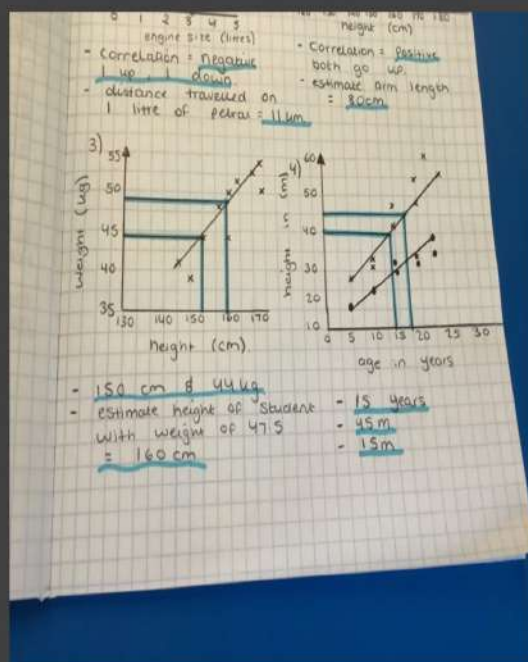 0 1 2 3 4 5
engine size (litres)
- Correlation = negative
1 up, 1 down
- distance travelled on
1 litre of petrol = 11 km
height (cm)
- Correlation = positive
both go up.
- estimate arm length
= 80cm
3)
55
50
45
40
35
weight (kg)
130 140 150 160 170
height (cm).
4)
60
50
40
30
20
10
height in (m)
0 5 10 15 20 25 30
age in years
- 150 cm & 44kg
- estimate height of student
with weight of 47.5
= 160 cm
- 15 years
- 45m
- 15m